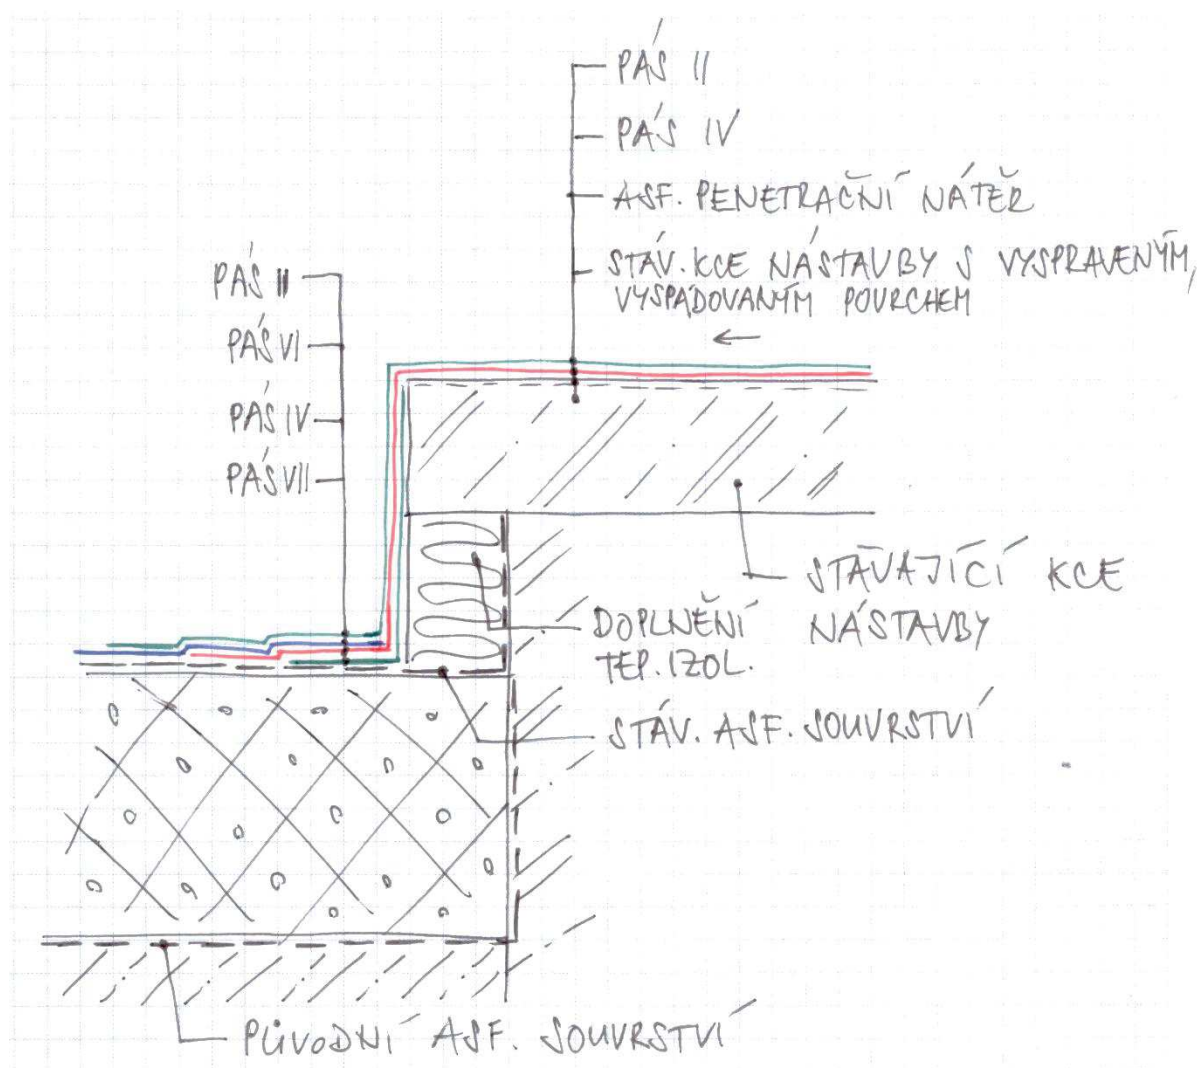 PÁS II
PÁS IV
ASF. PENETRAČNÍ NÁTĚR
STÁV. KCE NÁSTAVBY S VYSPRAVENÝM,
VYSPÁDOVANÝM POVRCHEM
PÁS II
PÁS VI
PÁS IV
PÁS VII
STÁVAJÍCÍ KCE
NÁSTAVBY
DOPLNĚNÍ
TEP. IZOL.
STÁV. ASF. SOUVRSTVÍ
PŮVODNÍ ASF. SOUVRSTVÍ